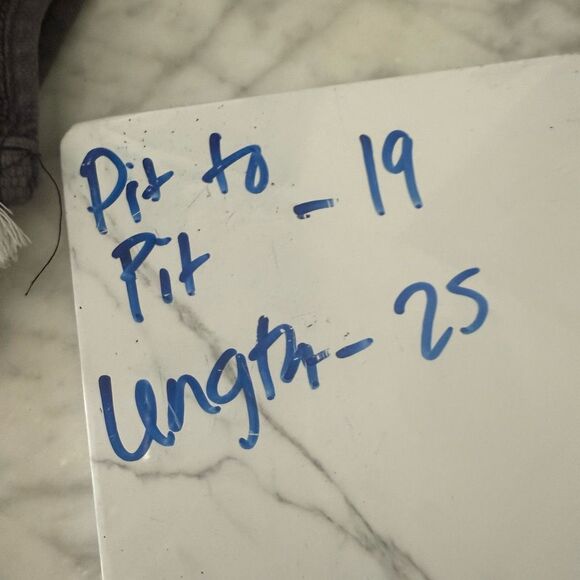 Pit to - 19
Pit
Length - 25